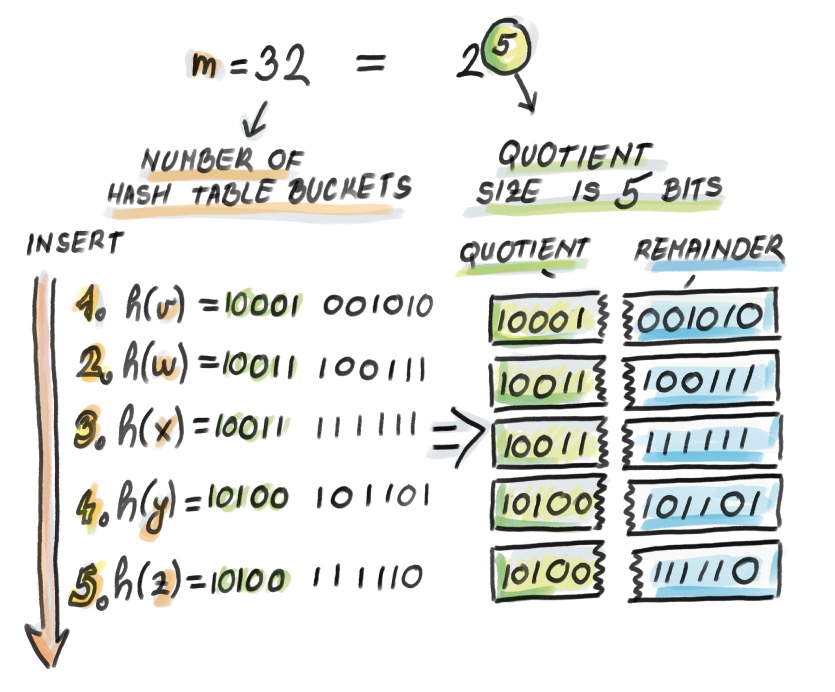 m = 32 = 2⁵
NUMBER OF
HASH TABLE BUCKETS
QUOTIENT
SIZE IS 5 BITS
INSERT
QUOTIENT REMAINDER
1. h(v) = 10001 001010
2. h(w) = 10011 100111
3. h(x) = 10011 111111 =>
4. h(y) = 10100 101101
5. h(z) = 10100 111110
10001 001010
10011 100111
10011 111111
10100 101101
10100 111110